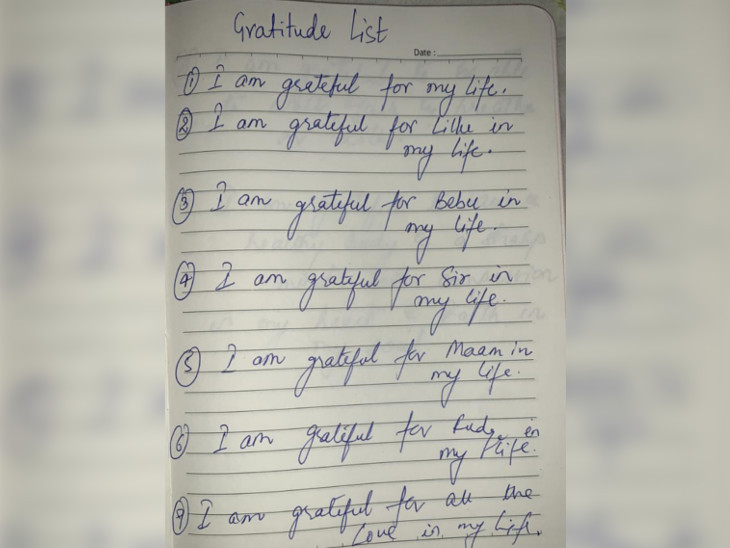 Gratitude List
Date :
① I am grateful for my life.
② I am grateful for Lillu in
my life.
③ I am grateful for Bebu in
my life.
④ I am grateful for Sir in
my life.
⑤ I am grateful for Maam in
my life.
⑥ I am grateful for in
my life.
⑦ I am grateful for all the
Love in my life.